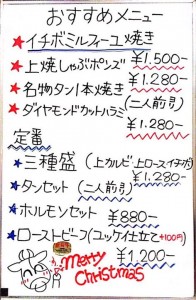 おすすめメニュー
★イチボミルフィーユ焼き
¥1,500-
★上焼しゃぶポンズ
¥1,280-
★名物タン1本焼き
★ダイヤモンドカットハラミ(二人前引)
¥1,280-
定番
★三種盛(上カルビ・上ロース・イチボ)
¥1,280-
★タンセット(二人前引)
★ホルモンセット ¥880-
★ローストビーフ(ユッケ仕立て+100円)
¥1,200-
Merry
Christmas